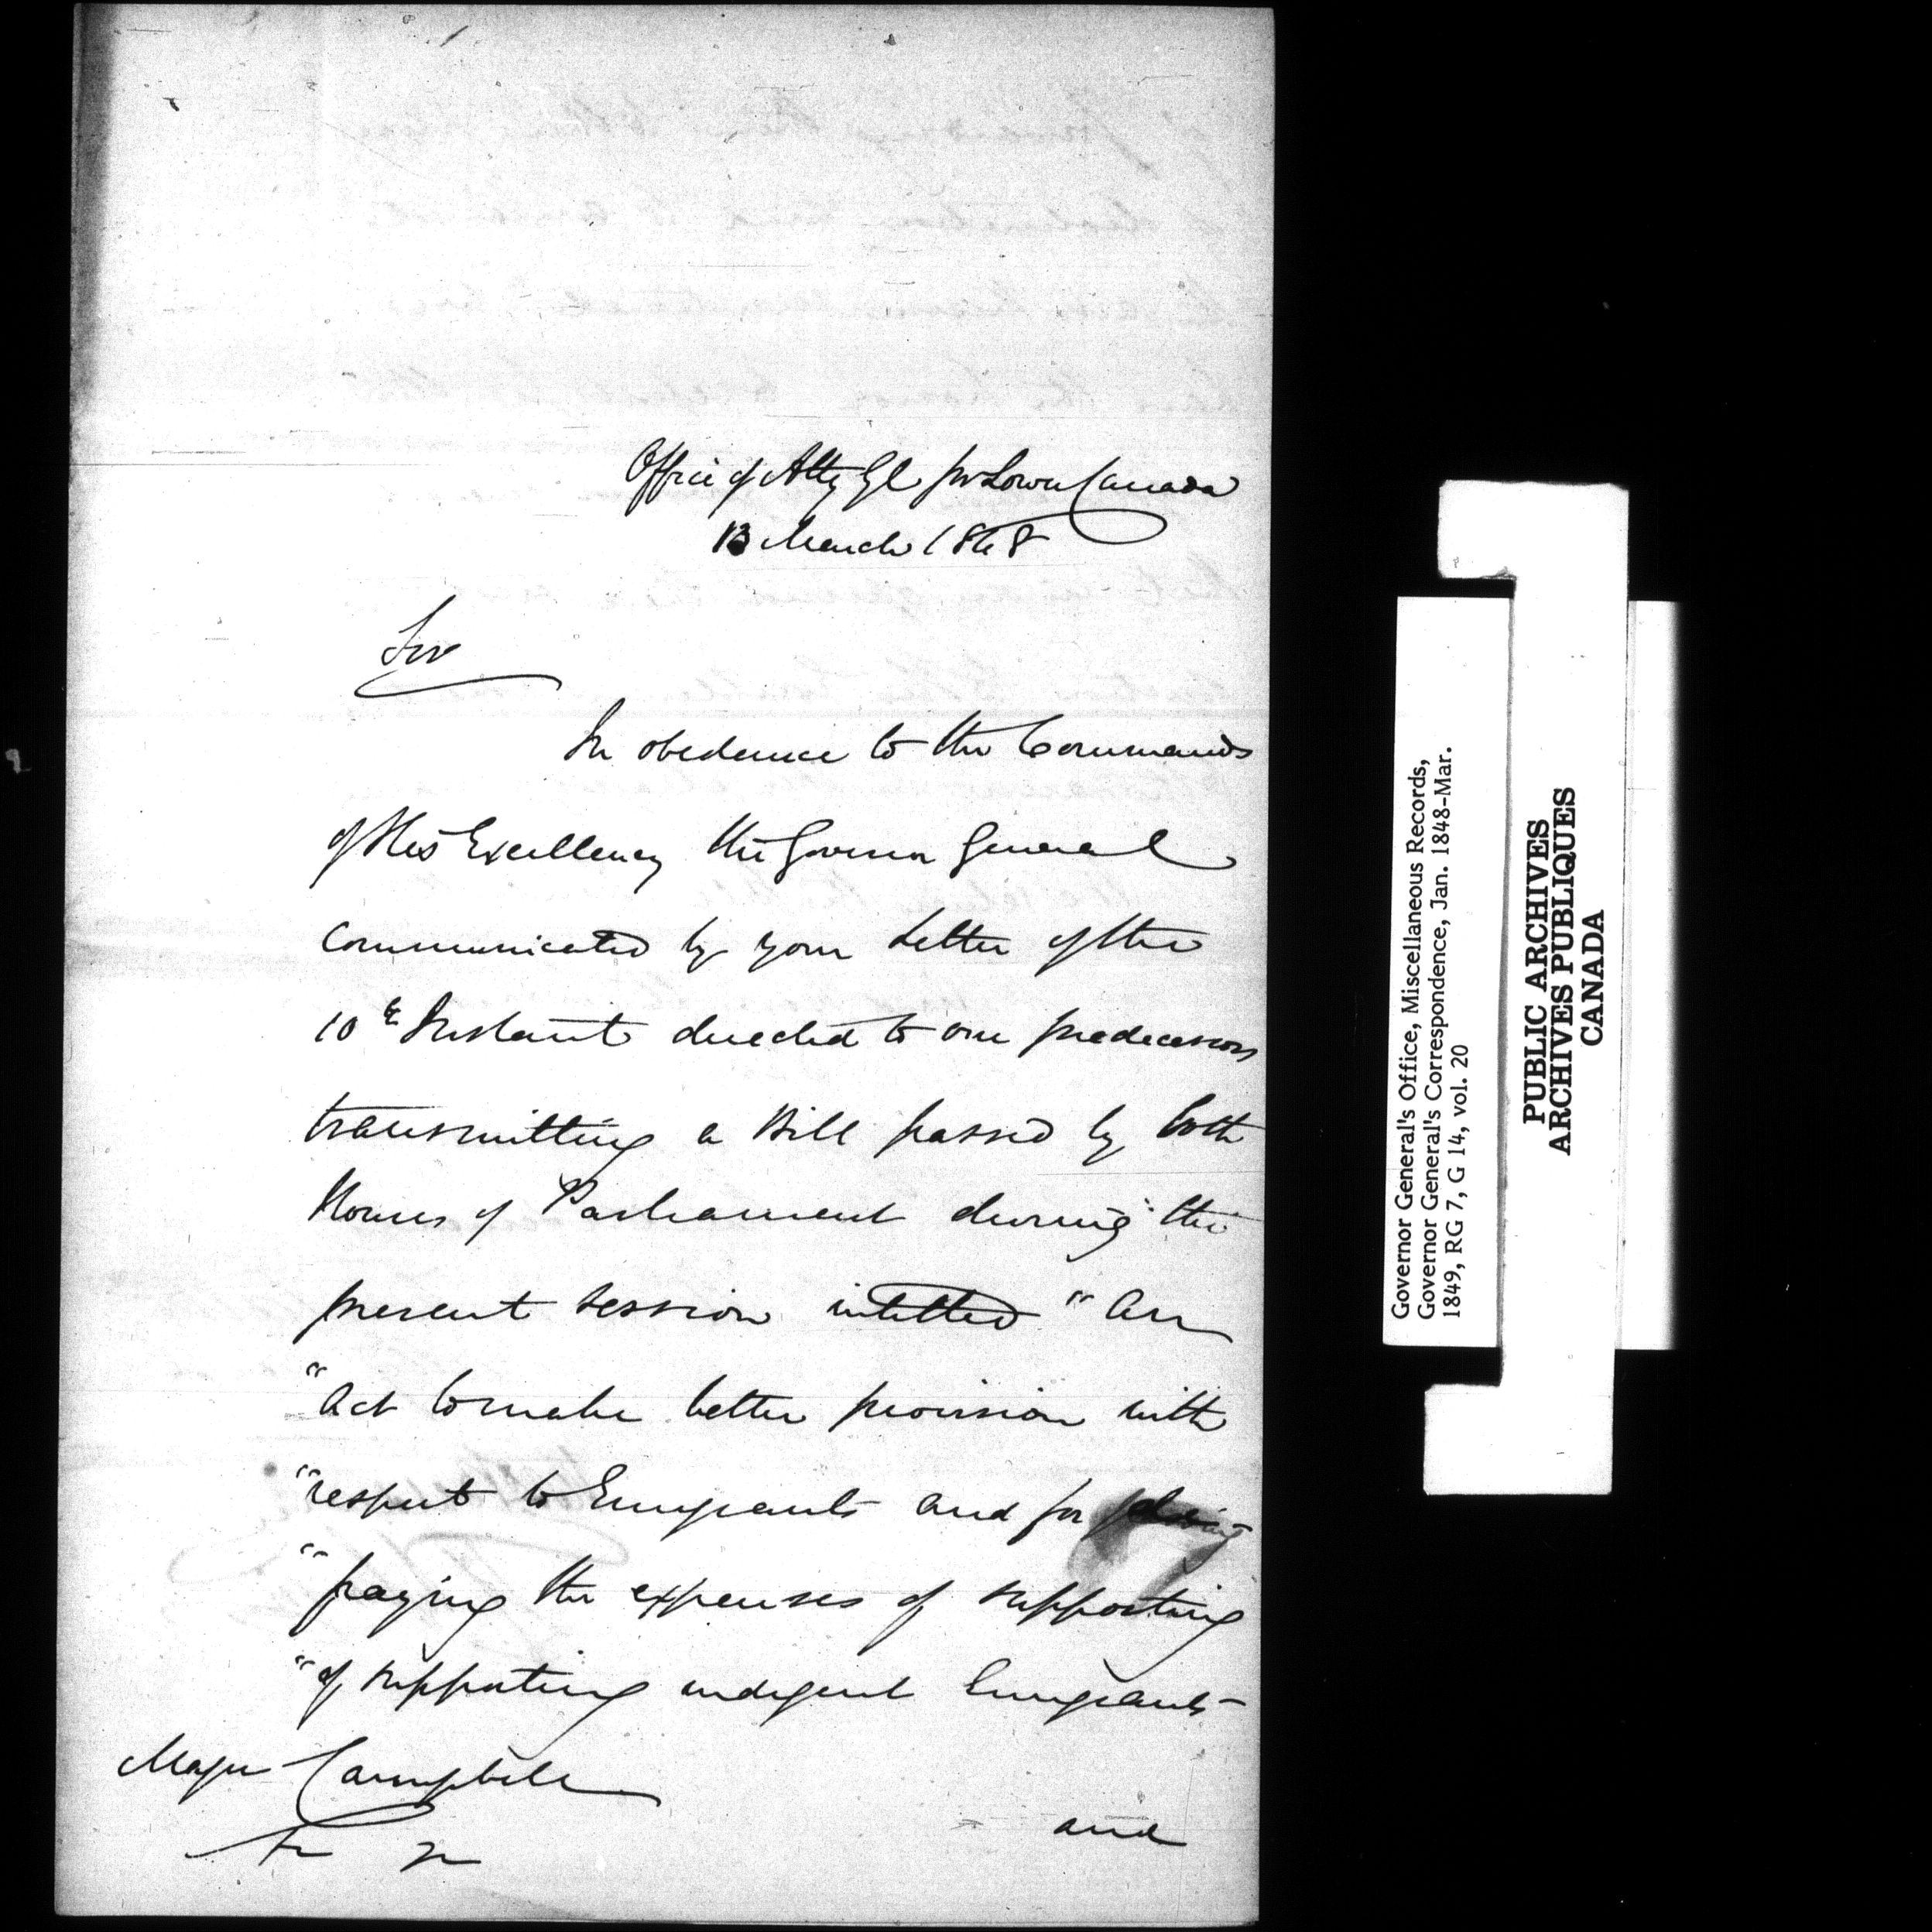 Office of Atty Gl for Lower Canada
13 March 1848
Sir
In obedience to the Commands
of His Excellency the Governor General
Communicated by your Letter of the
10th Instant directed to our predecessors
transmitting a Bill passed by both
Houses of Parliament during the
present Session intitled " An
" Act to make better provision with
" respect to Emigrants and for
" paying the expenses of supporting
" of supporting indigent Emigrants
Major Campbell
&c &c
and
Governor General's Office, Miscellaneous Records,
Governor General's Correspondence, Jan. 1848-Mar.
1849, RG 7, G 14, vol. 20
PUBLIC ARCHIVES
ARCHIVES PUBLIQUES
CANADA